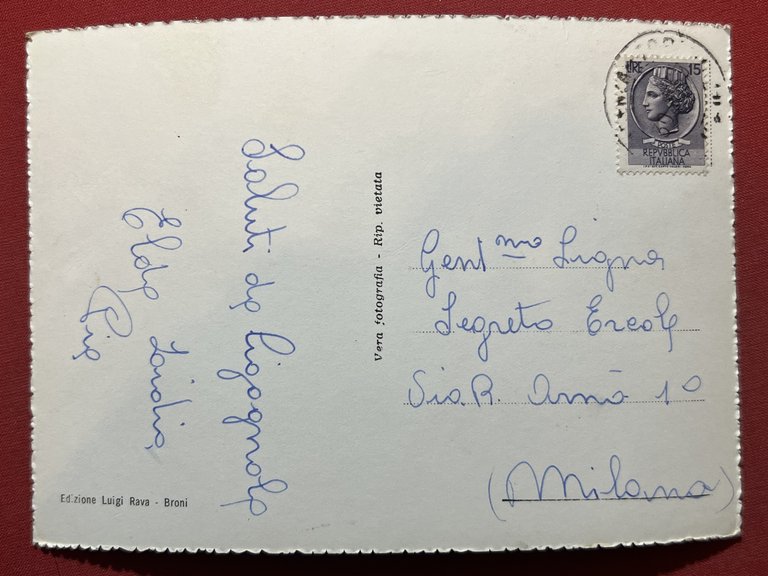 Saluti da Cigognola
Elda Lidia
Pia
Edizione Luigi Rava - Broni
Vera fotografia - Rip. vietata
LIRE 15
POSTE
REPVBBLICA
ITALIANA
Gent mo Signor
Segreto Ercole
Via R. Arnò 1°
(Milano)